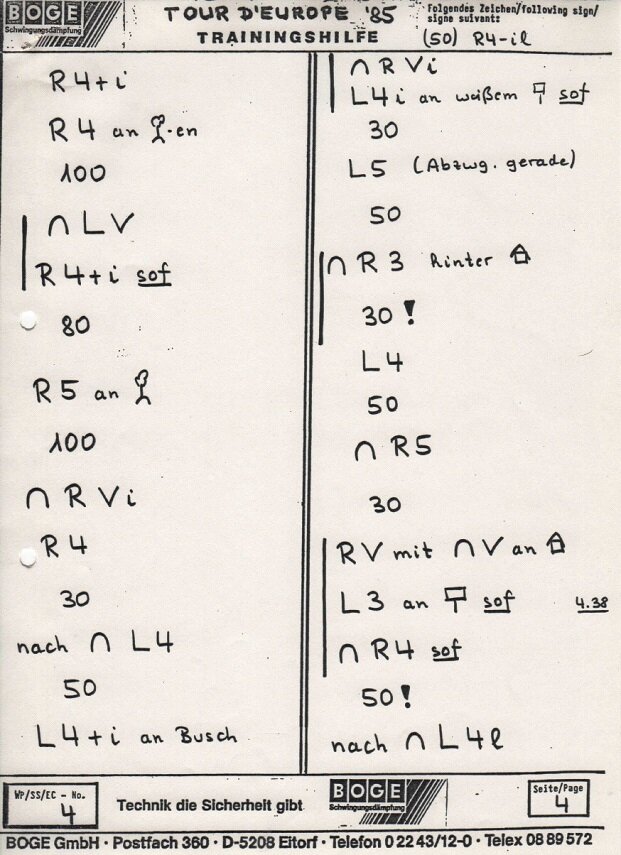 BOGE
Schwingungsdämpfung
TOUR D'EUROPE '85
TRAININGSHILFE
Folgendes Zeichen/following sign/
signe suivant:
(50) R4-il
R4+i
R4 an -en
100
∩ L V
R4+i sof
80
R5 an
100
∩ R Vi
R4
30
nach ∩ L4
50
L4+i an Busch
∩ R Vi
L4i an weißem sof
30
L5 (Abzwg. gerade)
50
∩ R3 hinter
30!
L4
50
∩ R5
30
RV mit ∩ V an
L3 an sof 4.38
∩ R4 sof
50!
nach ∩ L4l
WP/SS/EC - No.
4
Technik die Sicherheit gibt
BOGE
Schwingungsdämpfung
Seite/Page
4
BOGE GmbH · Postfach 360 · D-5208 Eitorf · Telefon 0 22 43/12-0 · Telex 08 89 572